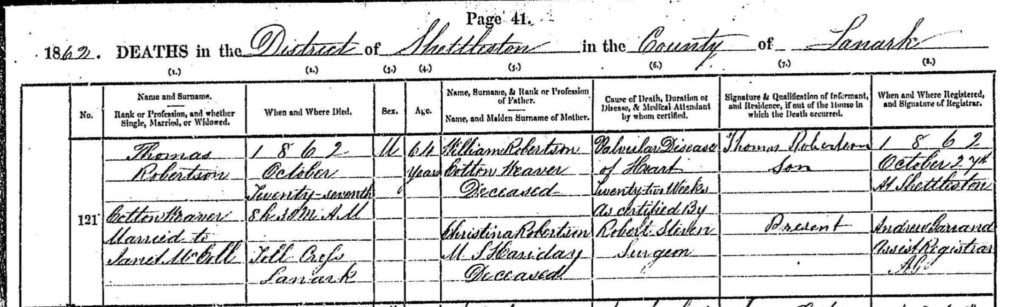 Page 41.
1862. DEATHS in the District of Shettleston in the County of Lanark
(1.) (2.) (3.) (4.) (5.) (6.) (7.) (8.)
No.
Name and Surname.
Rank or Profession, and whether Single, Married, or Widowed.
When and Where Died.
Sex.
Age.
Name, Surname, & Rank or Profession of Father.
Name, and Maiden Surname of Mother.
Cause of Death, Duration of Disease, & Medical Attendant by whom certified.
Signature & Qualification of Informant, and Residence, if out of the House in which the Death occurred.
When and Where Registered, and Signature of Registrar.
121
Thomas
Robertson
Cotton Weaver
Married to
Janet McColl
1862
October
Twenty-seventh
8 h. 30 M. A M
Toll Cross
Lanark
M
64
Years
William Robertson
Cotton Weaver
Deceased
Christina Robertson
M. S.
Deceased
Valvular Disease
of Heart
Twenty two Weeks
As certified By
Robert Stiven
Surgeon
Thomas Robertson
Son
Present
1862
October 27th
At Shettleston
Andrew
Assist Registrar